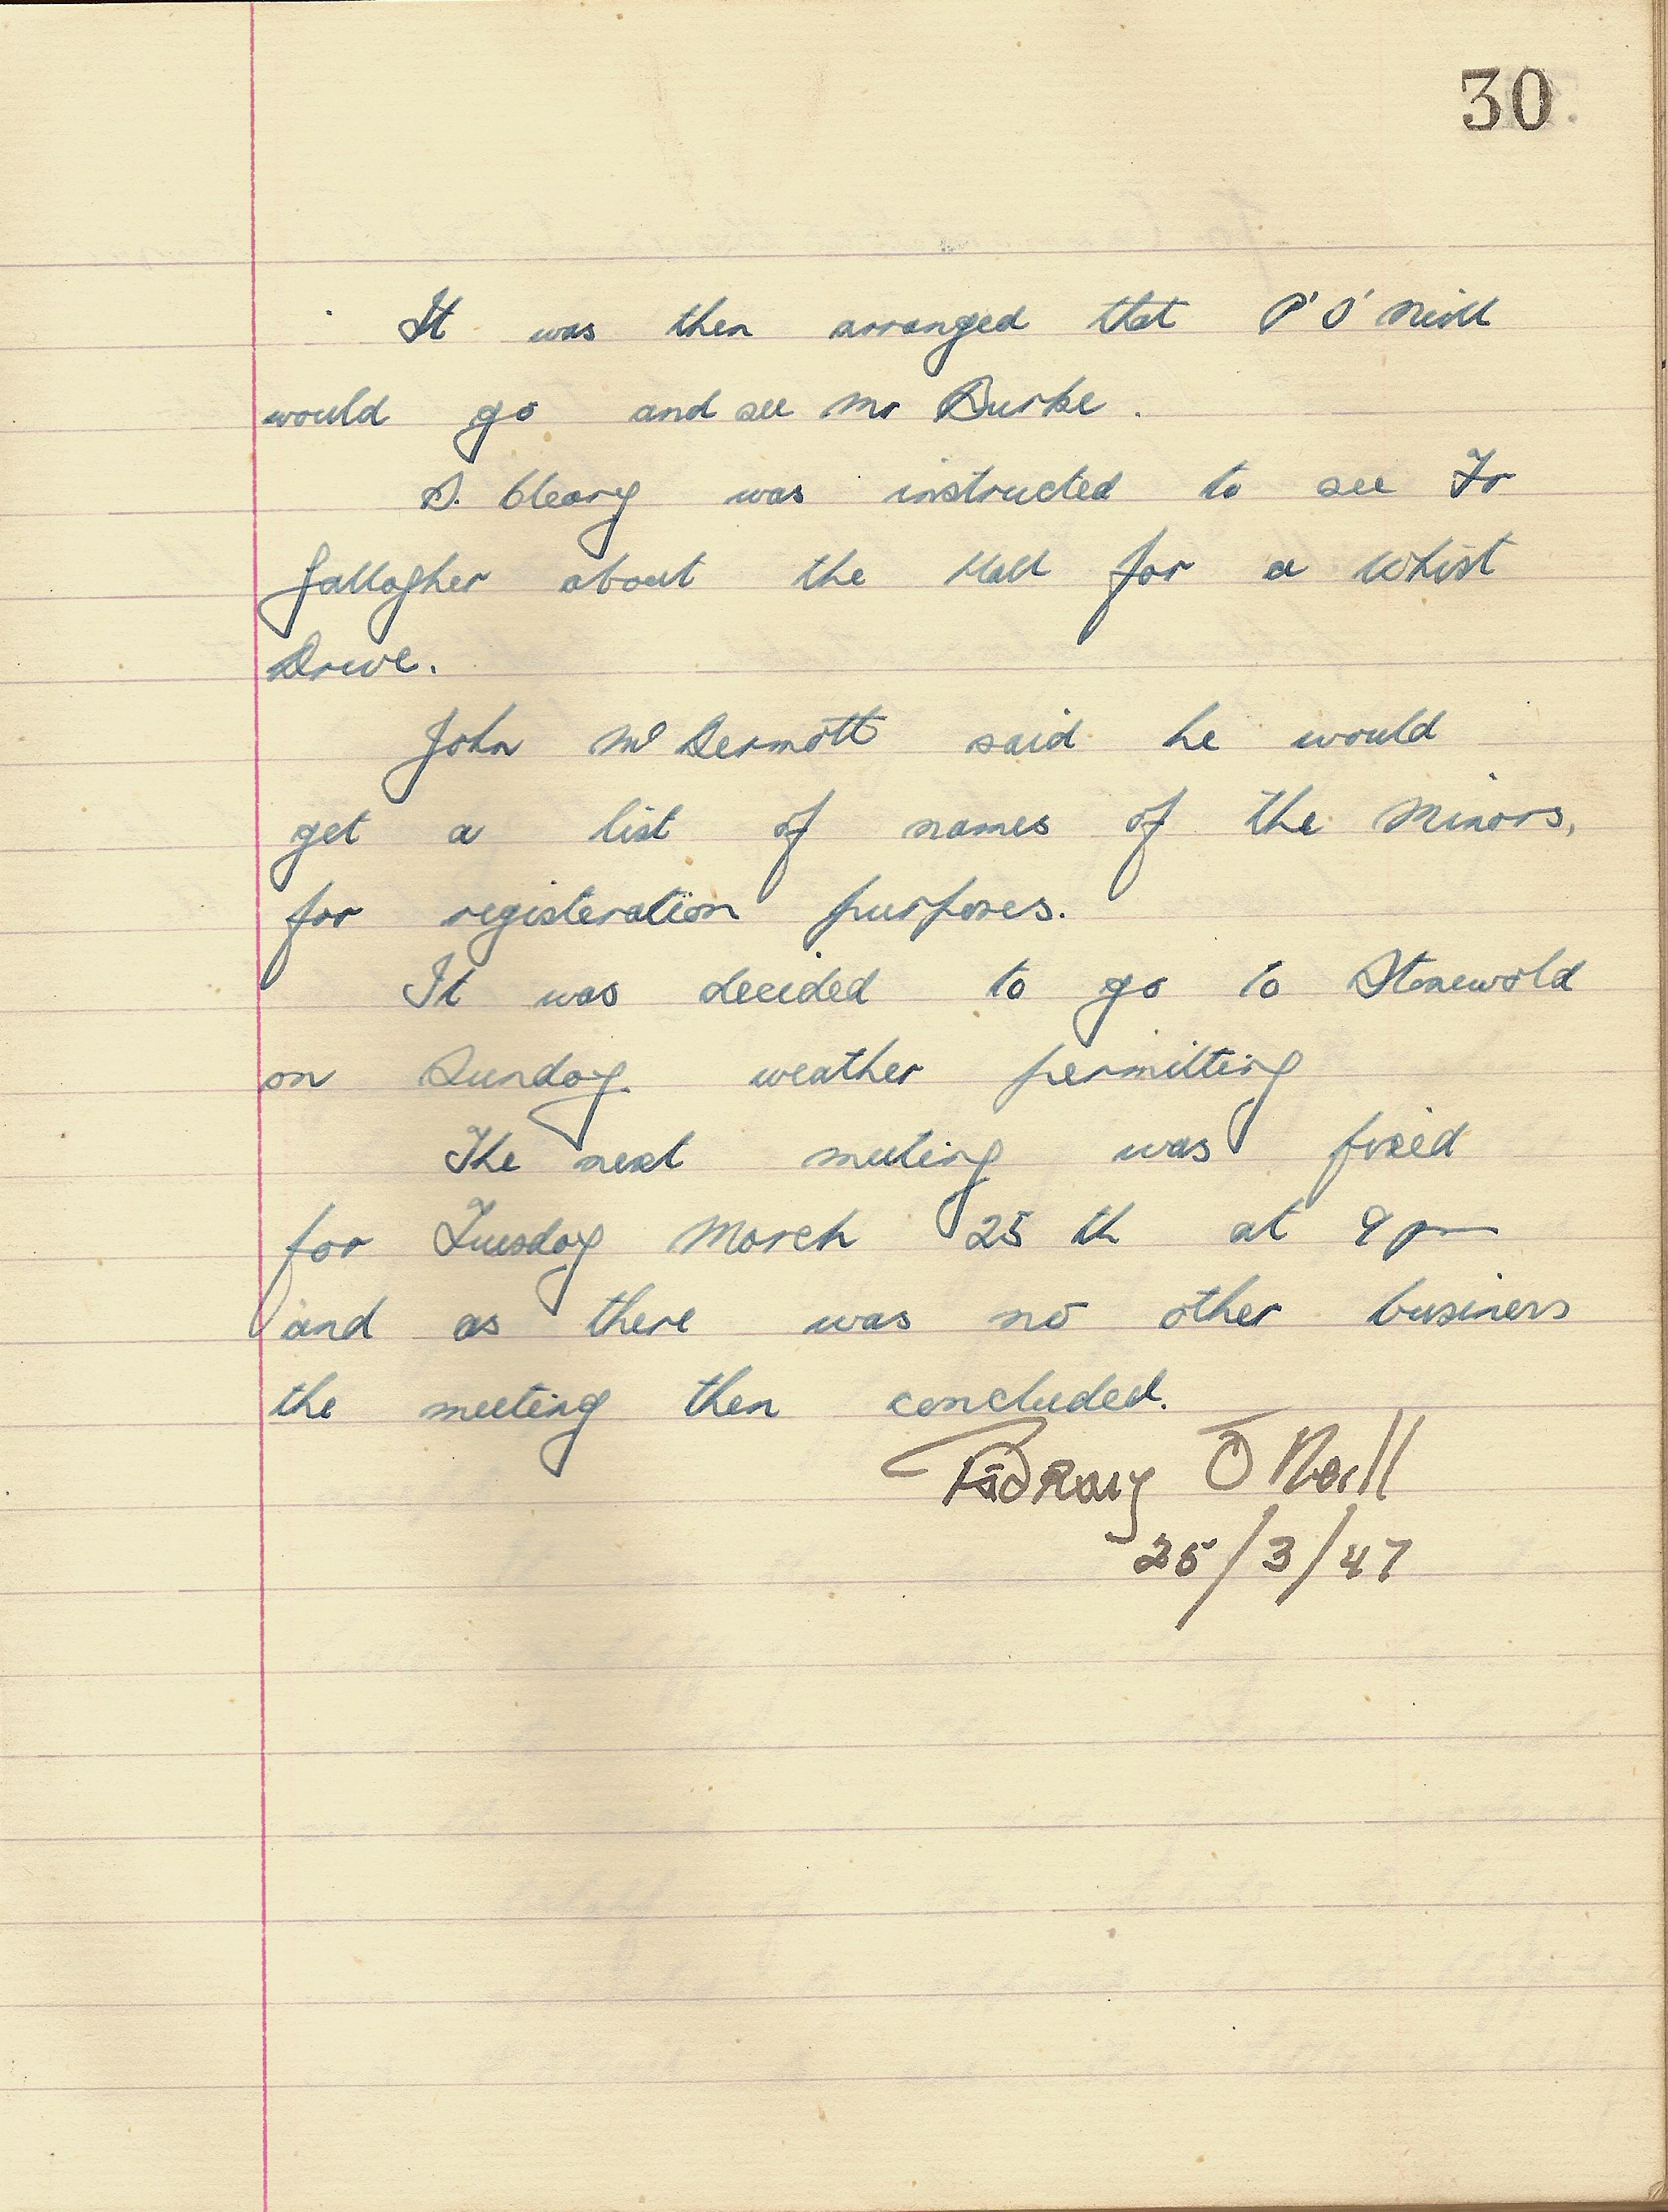 30.
It was then arranged that P O'Neill
would go and see Mr Burke.
S. Cleary was instructed to see Fr
Gallagher about the Hall for a Whist
Drive.
John McDermott said he would
get a list of names of the Minors,
for registeration purposes.
It was decided to go to Stonewold
on Sunday weather permitting
The next meeting was fixed
for Tuesday March 25 th at 9 pm
and as there was no other business
the meeting then concluded.
Padraig O Neill
25/3/47